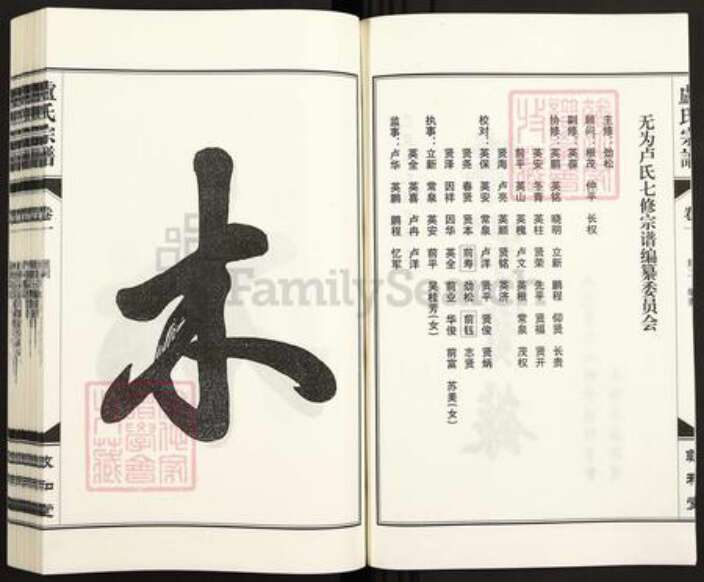 无为卢氏七修宗谱编纂委员会
主修：劲松
顾问：根茂 仲平 长权
副修：英葆
协修：英鹏 英铭 晓明 立新 鹏程 仰贤 长贵
英安 冬青 英柱 贤荣 先平 贤福 贤开
前平 英山 英槐 卢文 英根 常泉 茂权
贤海 卢亮 英顺 贤铭 英济
校对：英保 英安 常泉 卢洋 贤平 贤俊 贤炳
贤尧 春贤 贤本 前寿 劲松 前钰 志贤
贤泽 因祥 因华 英全 前业 华俊 前富 苏美(女)
执事：立新 常泉 英安 前平 吴桂芳(女)
英全 英喜 卢冉 卢洋
监事：卢华 英鹏 鹏程 忆军
木
卢氏宗谱
卷一
敦和堂
FamilySearch